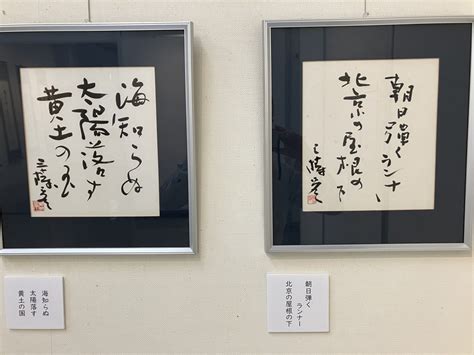 海知らぬ
太陽落す
黄土の国
三樹彦
海知らぬ
太陽落す
黄土の国
朝日弾くランナー
北京の屋根の下
三樹彦
朝日弾く
ランナー
北京の屋根の下